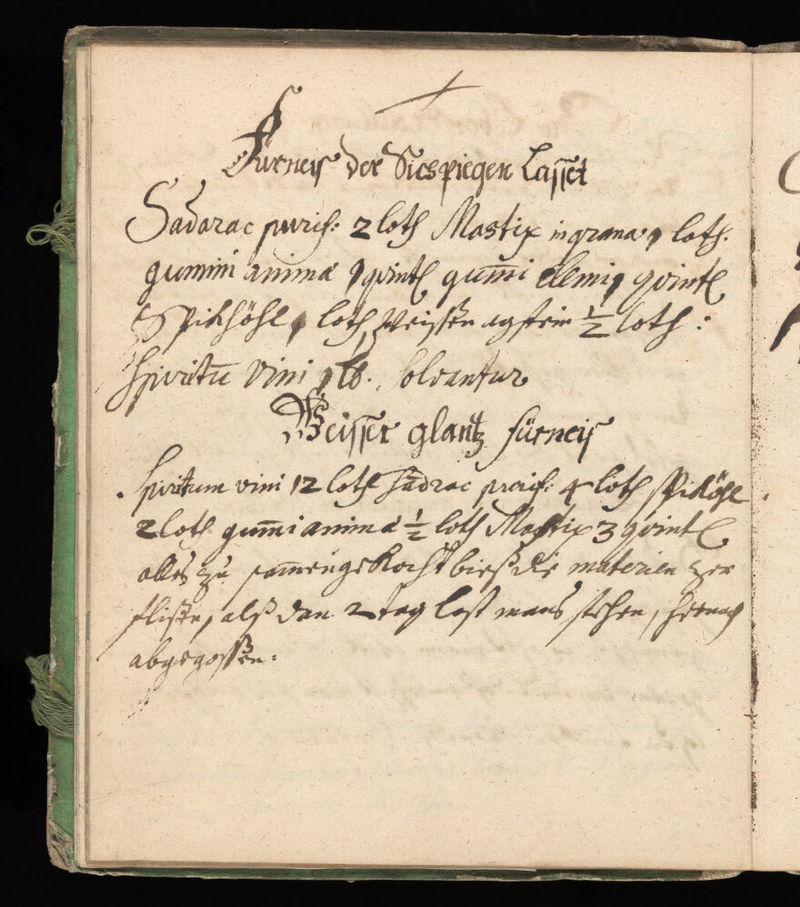 Fürneiß der Sicspiegen Lasset
Sadarac puris: 2 loth Mastix in grana 1 loth.
gummi animæ 1 quintl gum̄i elemi 1 quintl
Spikhöhl 1 loth, Weissen agstein ½ loth :
Spiritu Vini 1 lb. solvantur
Weisser glantz fürneiß
Spiritum vini 12 loth Sādrac puris: 4 loth spiköhl
2 loth gum̄i anima ½ loth Mastix 3 quintl
alles zu sam̄engekocht bieß die materien zer
flissen, alß dan 2 tag last mans stehen, hernach
abgegossen: